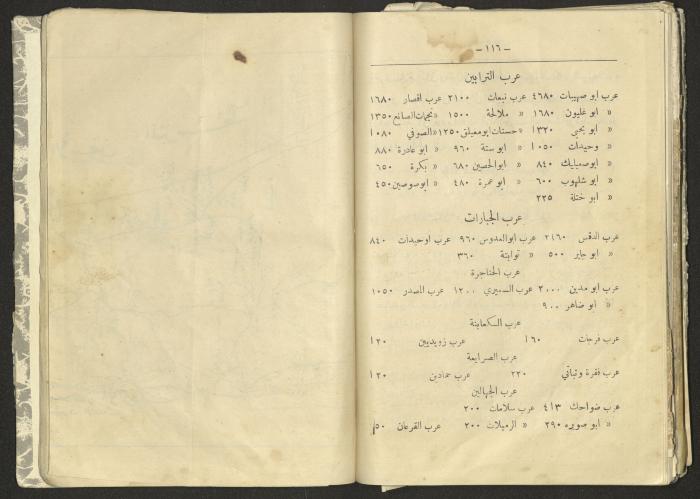 - ١١٦ -
عرب الترابين
عرب ابو صهيبات ٤٦٨٠ عرب نبعات ٢١٠٠ عرب اقصار ١٦٨٠
» ابو غليون ١٦٨٠ » ملالحة ١٥٠٠ » نجمات الصانع ١٣٥٠
» ابو يحيى ١٣٢٠ » حسنات ابو معيلق ١٢٥٠ » الصوفي ١٠٨٠
» وحيدات ١٠٥٠ » ابو ستة ٩٦٠ » ابو عاذرة ٨٨٠
» ابو صعيليك ٨٤٠ » ابو الحصين ٦٨٠ » بكرة ٦٥٠
» ابو شلهوب ٦٠٠ » ابو عمرة ٤٨٠ » ابو صوصين ٤٥٠
» ابو ختلة ٢٢٥
عرب الجبارات
عرب الدقس ٢١٦٠ عرب ابو العدوس ٩٦٠ عرب اوحيدات ٨٤٠
» ابو جابر ٥٠٠ » توابتة ٣٦٠
عرب الحناجرة
عرب ابو مدين ٢٠٠٠ عرب السميري ١٢٠٠ عرب المصدر ١٠٥٠
» ابو ضاهر ٩٠٠
عرب السكعاينة
عرب فرجات ١٦٠ عرب زويديين ١٢٠
عرب الصرايعة
عرب فقرة وتباتي ٢٢٠ عرب حمادين ١٢٠
عرب الجهالين
عرب ضواحك ٤١٣ عرب سلامات ٢٠٠
» ابو صويره ٢٩٠ » الرميلات ٢٠٠ عرب القرعان ١٥٠